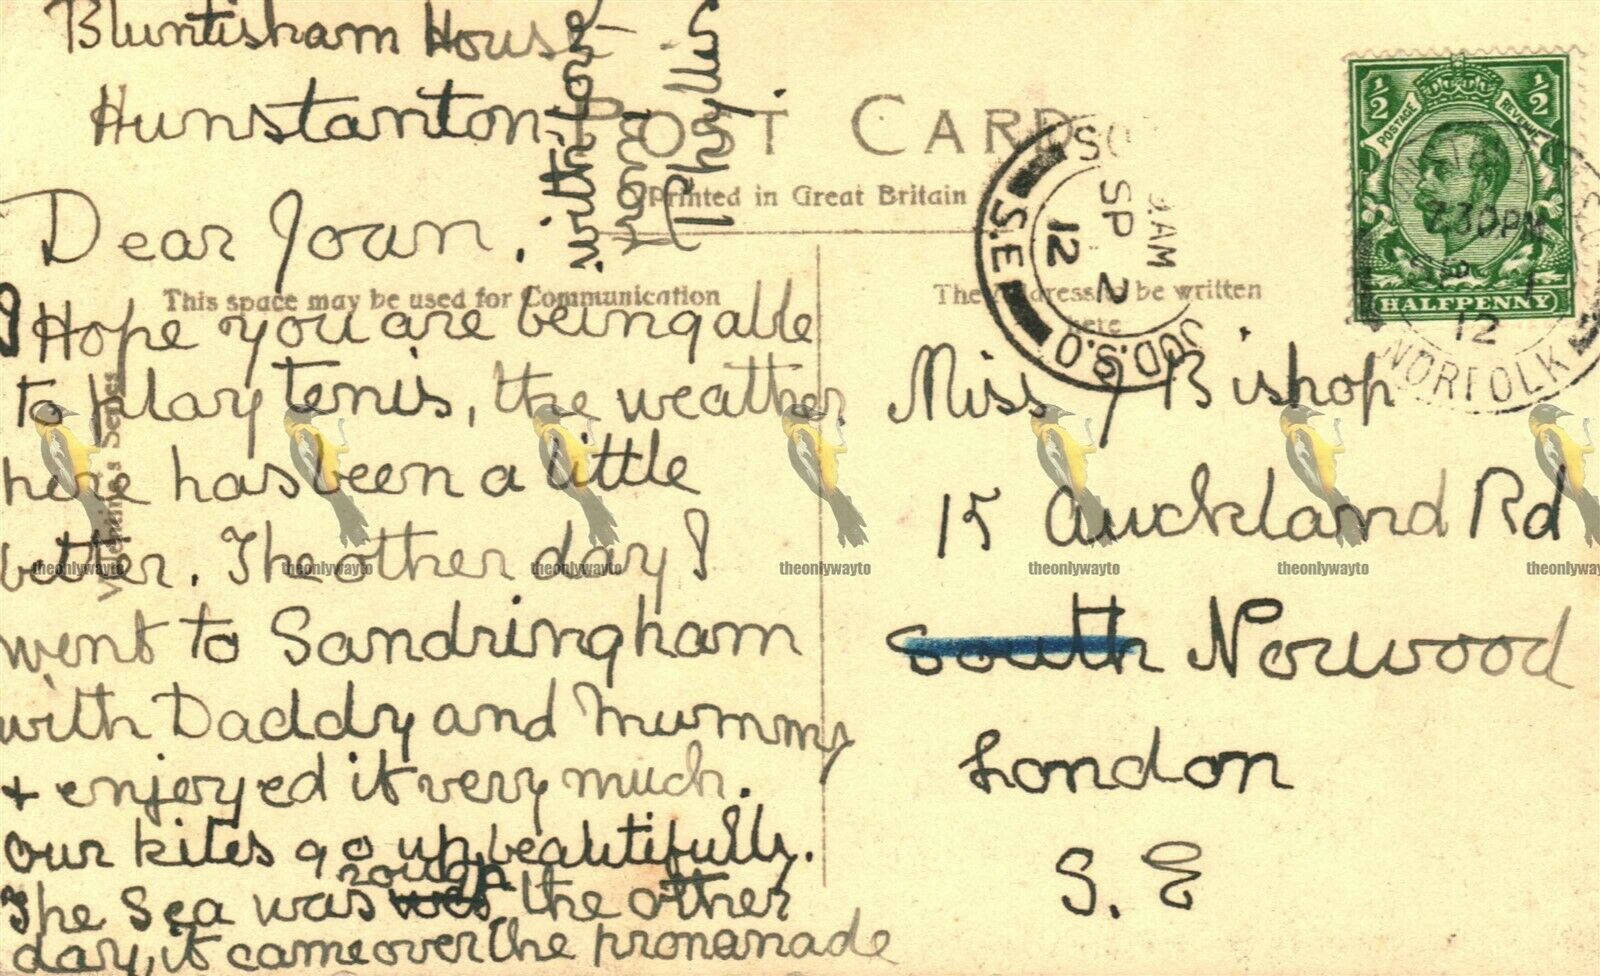 Bluntisham House
Hunstanton
Dear Joan.
I Hope you are being able
to play tenis, the weather
here has been a little
better. The other day I
went to Sandringham
with Daddy and Mummy
+ enjoyed it very much.
Our kites go up beautifully.
The Sea was rough the other
day, it came over the pronanade
with love
from
Phyllis
POST CARD
Printed in Great Britain
This space may be used for Communication
The Address to be written
here
Valentines Series
Miss J Bishop
15 Auckland Rd
South Norwood
London
S. E
POSTAGE
REVENUE
½
½
HALFPENNY
7.30PM
SP 1
12
NORFOLK
.AM
SP 2
12
S.E
S.O
theonlywayto
theonlywayto
theonlywayto
theonlywayto
theonlywayto
theonlywayto
theonlyway